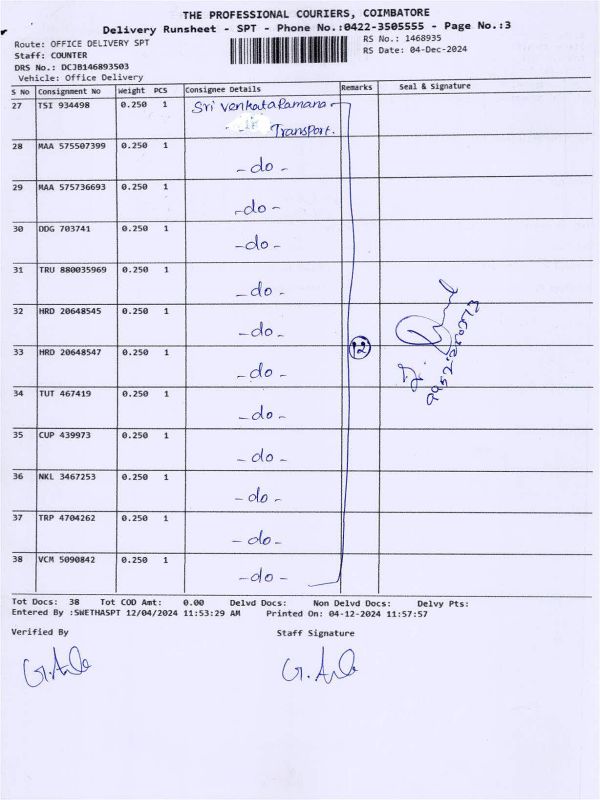 THE PROFESSIONAL COURIERS, COIMBATORE
Delivery Runsheet - SPT - Phone No.:0422-3505555 - Page No.:3
Route: OFFICE DELIVERY SPT
RS No.: 1468935
Staff: COUNTER
RS Date: 04-Dec-2024
DRS No.: DCJB146893503
Vehicle: Office Delivery
S No Consignment No Weight PCS Consignee Details Remarks Seal & Signature
27 TSI 934498 0.250 1 Sri Venkataramana
Transport.
28 MAA 575507399 0.250 1 - do -
29 MAA 575736693 0.250 1 - do -
30 DDG 703741 0.250 1 - do -
31 TRU 880035969 0.250 1 - do -
32 HRD 20648545 0.250 1 - do -
33 HRD 20648547 0.250 1 - do - 12
34 TUT 467419 0.250 1 - do -
35 CUP 439973 0.250 1 - do -
36 NKL 3467253 0.250 1 - do -
37 TRP 4704262 0.250 1 - do -
38 VCM 5090842 0.250 1 - do -
Tot Docs: 38 Tot COD Amt: 0.00 Delvd Docs: Non Delvd Docs: Delvy Pts:
Entered By :SWETHASPT 12/04/2024 11:53:29 AM Printed On: 04-12-2024 11:57:57
Verified By Staff Signature